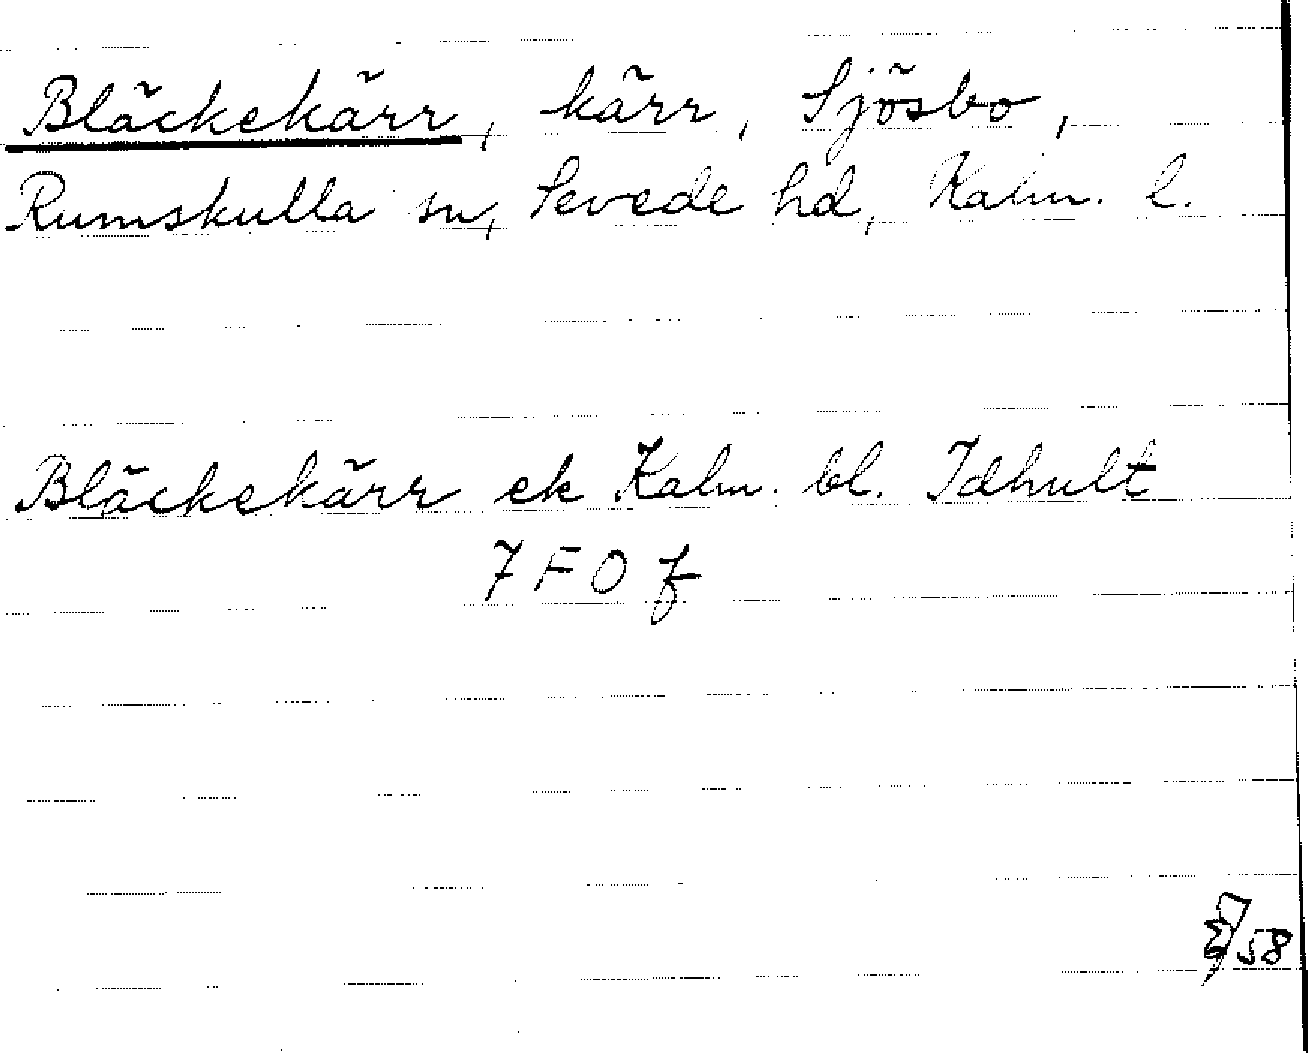 Bläckekärr, kärr, Sjösbo,
Rumskulla sn, Sevede hd, Kalm. l.
Bläckekärr ek Kalm. bl. Idhult
7 F O f
58